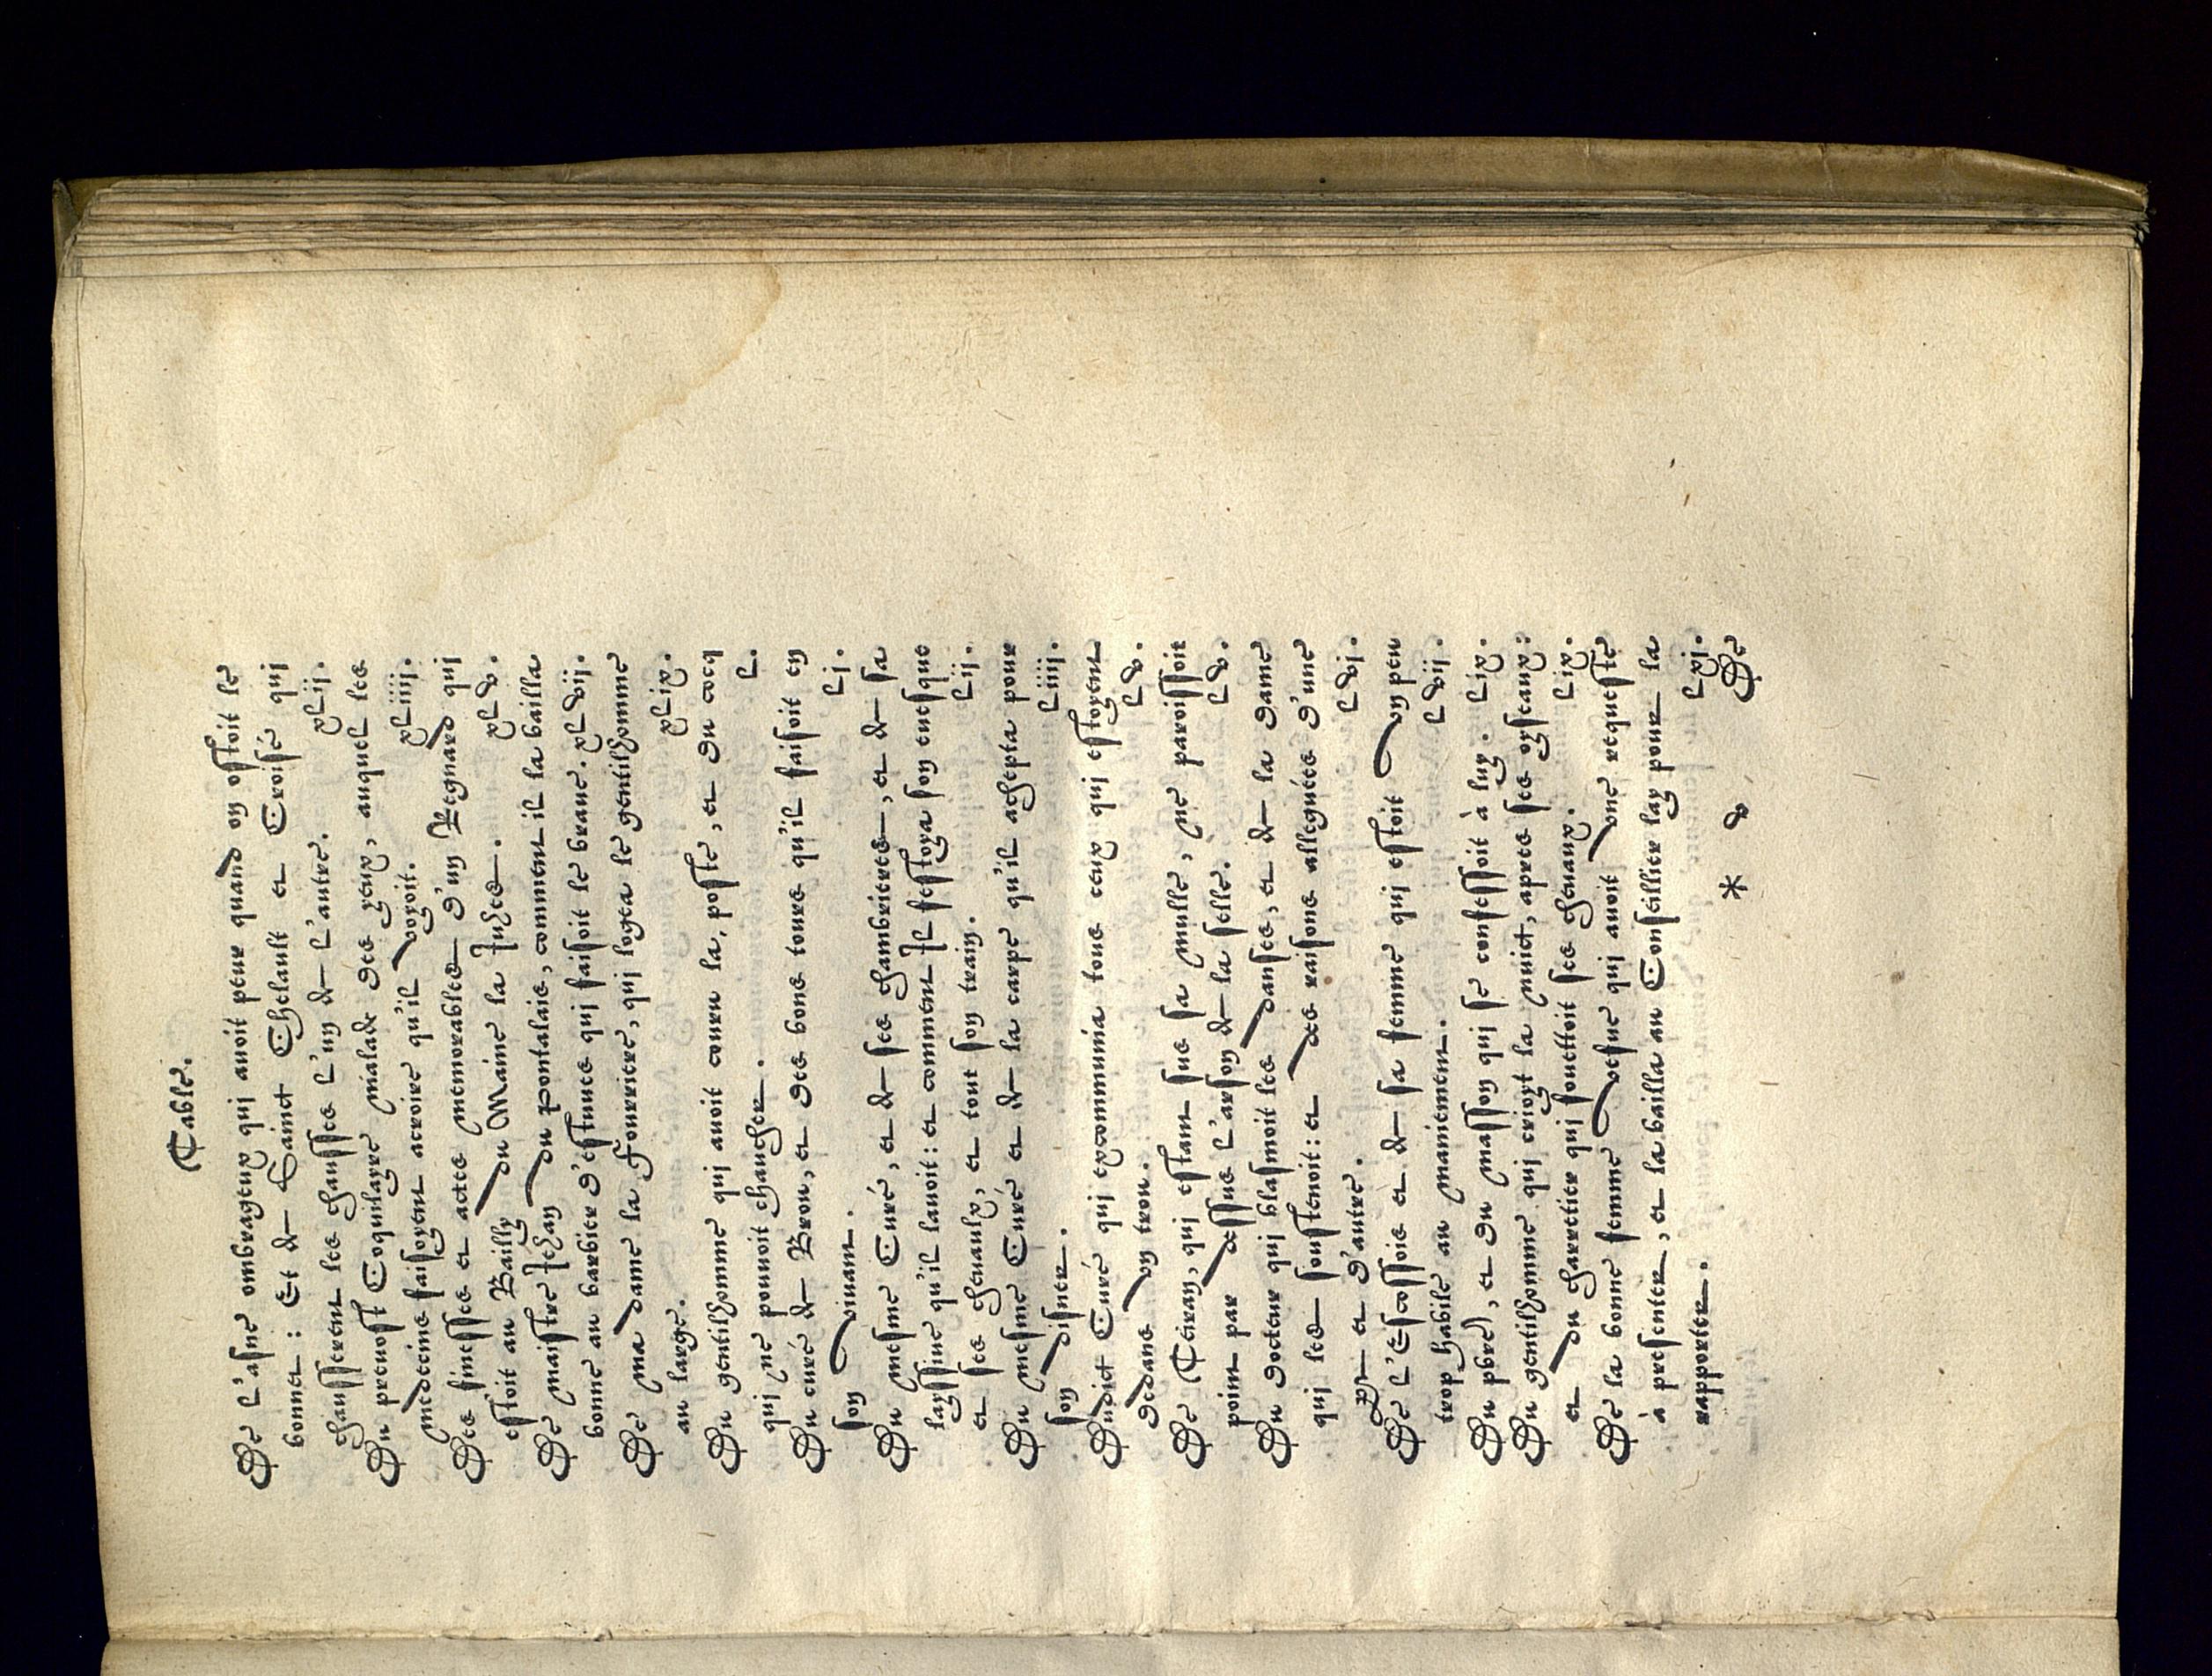 Table.
De l'asne ombrageux qui auoit peur quand on ostoit le
bonnet : Et de Sainct Chelault et Croisé qui
chausserent les chausses l'un de l'autre. xlij.
Du preuost Coquilayre malade des yeux, auquel les
medecins faisoyent acroire qu'il voyoit. xliiij.
Des finesses et actes memorables d'un Regnard qui
estoit au Bailly du Maine la Iuhes. xlv.
De maistre Iehan du Pontalais, comment il la bailla
bonne au barbier d'estuues qui faisoit le braue. xlvij.
De ma dame la Fourriere, qui logea le gentilhomme
au large. xlix.
Du gentilhomme qui auoit couru la, poste, et du cocq
qui ne pouuoit chaucher. l.
Du curé de Brou, et des bons tours qu'il faisoit en
son viuant. lj.
Du mesme Curé, et de ses chambrieres, et de sa
layssiue qu'il lauoit: et comment Il festoya son euesque
et ses cheuaulx, et tout son train. lij.
Du mesme Curé et de la carpe qu'il achepta pour
son disner. liiij.
Dudict Curé qui excommunia tous ceux qui estoyent
dedans vn trou. lv.
De Teiran, qui estant sus sa mulle, ne paroissoit
point par dessus l'arson de la selle. lv.
Du docteur qui blasmoit les danses, et de la dame
qui les soustenoit: et des raisons alleguées d'une
part et d'autre. lvj.
De l'Escossois et de sa femme qui estoit vn peu
trop habile au maniement. lvij.
Du pbre), et du masson qui se confessoit à luy. lix.
Du gentilhomme qui crioyt la nuict, apres ses oyseaux:
et du charretier qui fouettoit ses cheuaux. lix.
De la bonne femme vefue qui auoit vne requeste
à presenter, et la bailla au Conseillier lay pour la
rapporter. lxj.
* v De